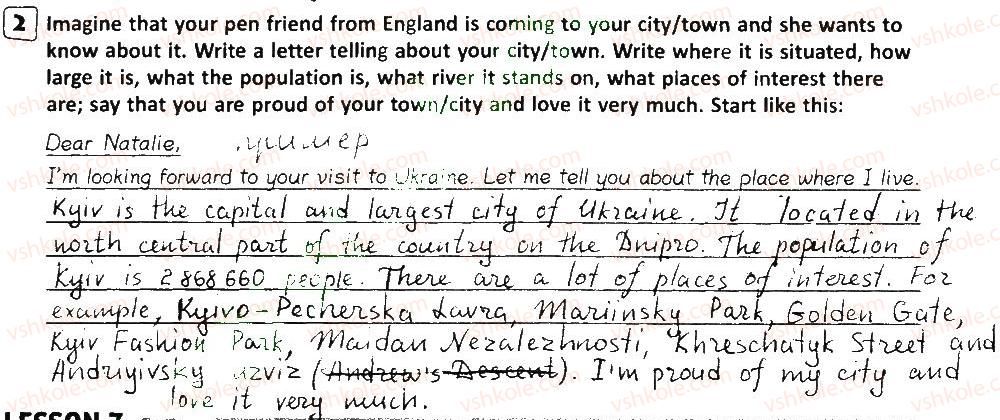 2 Imagine that your pen friend from England is coming to your city/town and she wants to
know about it. Write a letter telling about your city/town. Write where it is situated, how
large it is, what the population is, what river it stands on, what places of interest there
are; say that you are proud of your town/city and love it very much. Start like this:
Dear Natalie,
I'm looking forward to your visit to Ukraine. Let me tell you about the place where I live.
Kyiv is the capital and largest city of Ukraine. It located in the
north central part of the country on the Dnipro. The population of
Kyiv is 2 868 660 people. There are a lot of places of interest. For
example, Kyivo-Pecherska Lavra, Mariinsky Park, Golden Gate,
Kyiv Fashion Park, Maidan Nezalezhnosti, Khreschatyk Street and
Andriyivsky uzviz (Andrew's Descent). I'm proud of my city and
love it very much.
LESSON 7